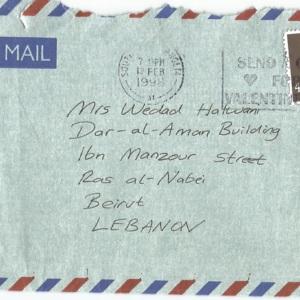 MAIL
7 15PM
12 FEB
1998
SEND A
♥ FO
VALENTIN
Mrs Wedad Halwani
Dar-al-Aman Building
Ibn Manzour Street
Ras al-Nabei
Beirut
LEBANON